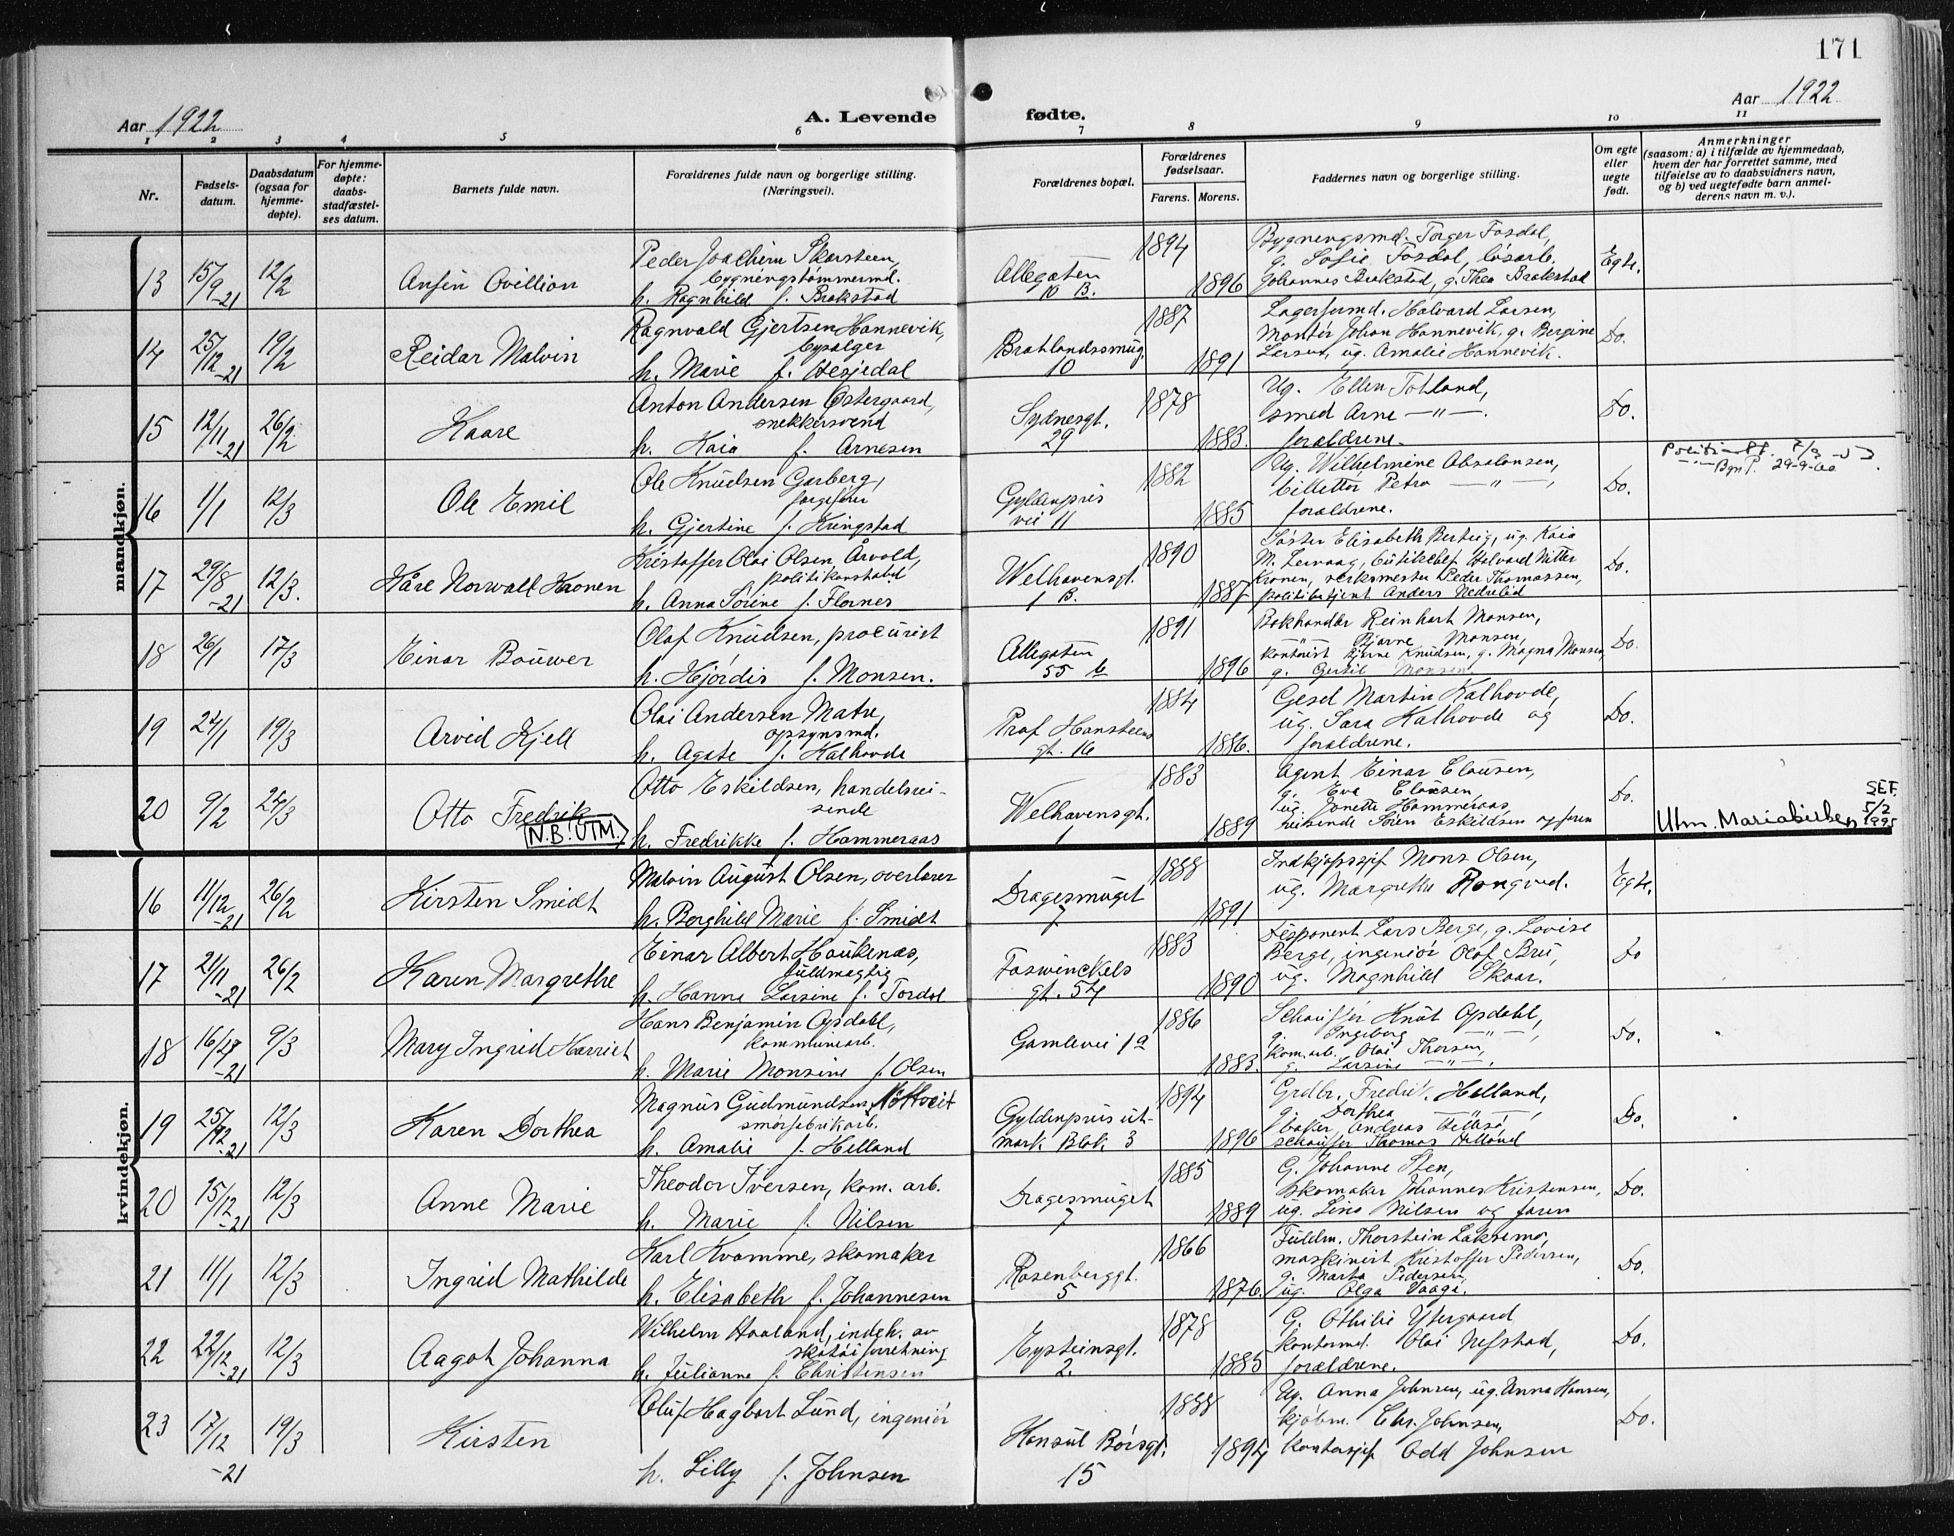 171
Aar 1922
A. Levende fødte.
Aar 1922
1 2 3 4 5 6 7 8 9 10 11
Nr.
Fødsels-
datum.
Daabsdatum
(ogsaa for
hjemme-
døpte).
For hjemme-
døpte:
daabs-
stadfæstel-
ses datum.
Barnets fulde navn.
Forældrenes fulde navn og borgerlige stilling.
(Næringsvei).
Forældrenes bopæl.
Forældrenes
fødselsaar.
Farens. Morens.
Faddernes navn og borgerlige stilling.
Om egte
eller
uegte
født.
Anmerkninger
(saasom: a) i tilfælde av hjemmedaab,
hvem der har forrettet samme, med
tilføielse av to daabsvidners navn,
og b) ved uegtefødte barn anmel-
derens navn m. v.).
mandkjøn.
13 15/9 -21 12/2 Ansin Ovillion
Peder Joachim Skarsteen,
bygningstømmermd.
h. Ragnhild f. Brakstad
Allegaten
10 B.
1894 1896
Bygningsmd. Torger Fosdal,
g. Sofie Fosdal, løsarb.
Johannes Brakstad, g. Thea Brakstad
Egte.
14 25/12 -21 19/2 Reidar Malvin
Ragnvald Gjertsen Hannevik,
bysælger
h. Marie f. Hesjedal
Bratlandssmug.
10
1887 1891
Lagerformd. Halvard Larsen,
Montør Johan Hannevik, g. Bergine
Larsen, ug. Amalie Hannevik.
Do.
15 12/11 -21 26/2 Kaare
Anton Andersen Østergaard,
snekkersvend
h. Kaia f. Arnesen
Sydnesgt.
29
1878 1883.
Ug. Ellen Totland,
smed Arne —"—.
forældrene.
Do.
16 1/1 12/3 Ole Emil
Ole Knudsen Garberg,
h. Gjertine f. Kringstad
Gyldenpris
vei 11
1882 1885
Ug. Wilhelmine Absalonsen,
Petra —"—,
forældrene.
Do.
29-9-60
17 29/8 -21 12/3. Kåre Norwall Kronen
Kristoffer Olai Olsen Årvold,
politikonstabel
h. Anna Sørine f. Flornes
Welhavensgt.
1 B.
1890 1887
Søster Elisabeth Berteig, ug. Kaia
M. Lervaag, Halvard Nitter
Kronen, verksmester Peder Thomassen,
politibetjent Anders Nedrelid
Do.
18 26/1 17/3 Einar Bouwer
Olaf Knudsen, procurist
h. Hjørdis f. Monsen.
Allegaten
55 b
1891 1896
Bokhandler Reinhart Monsen,
Bjarne Monsen,
kontorist Bjarne Knudsen, g. Magna Monsen,
g. Monsen
Do.
19 24/1 19/3 Arvid Kjell
Olai Andersen Matre,
opsynsmd.
h. Agate f. Kalhovde
Prof Hansteens
gt. 16
1884 1886.
Gesel Martin Kalhovde,
ug. Sara Kalhovde og
forældrene.
Do.
20 9/2 24/3 Otto Fredrik
N.B! UTM.
Otto Eskildsen, handelsrei-
sende
h. Fredrikke f. Hammeraas
Welhavensgt.
1
1883 1889
Agent Einar Clausen,
g. Eva Clausen,
ug. Jonette Hammeraas,
reisende Søren Eskildsen og faren
Do.
Utm. Mariakirken SEF.
5/2
1995
kvindekjøn.
16 11/12 -21 26/2 Kirsten Smidt
Malvin August Olsen, overlærer
h. Borghild Marie f. Smidt
Dragesmuget
7
1888 1891
Indkjøpssjef Mons Olsen,
ug. Margrethe Rongved.
Egte.
17 21/11 -21 26/2 Karen Margrethe
Einar Albert Haukenæs,
fuldmægtig
h. Hanna Larsine f. Tordal
Foswinckels
gt. 54
1883 1890
Disponent Lars Berge, g. Lovise
Berge, ingeniør Olaf Bru,
ug. Magnhild Skaar.
Do
18 -21 9/3 Mary Ingrid Harriet
Hans Benjamin Opdahl,
kommunearb.
h. Marie Monsine f. Olsen
Gamlevei 1a
1886 1883.
Schauffør Knut Opdahl,
g. Ingeborg —"—,
kom.arb. Olai Thorsen,
g. Larsine —"—.
Do.
19 25/12 -21 12/3 Karen Dorthea
Magnus Gudmundsen Nøttveit
smørfabrikarb.
h. Amalie f. Helland
Gyldenpris ut-
mark Blok 3
1894 1896
Grdbr. Fredrik Helland,
g. Dorthea —"—,
baker Andreas
schauffør Thomas Helland
Do.
20 15/12 -21 12/3 Anne Marie
Theodor Iversen, kom. arb.
h. Marie f. Nilsen
Dragesmuget
7
1885 1889
G. Johanne Sten,
skomaker Johannes Kristensen,
ug. Lina Nilsen og faren
Do.
21 11/1 12/3 Ingrid Mathilde
Karl Kvamme, skomaker
h. Elisabeth f. Johannesen
Rosenberggt.
5
1866 1876.
Fuldm. Thorstein Laksemo,
maskinist Kristoffer Pedersen,
g. Marta Pedersen,
ug. Olga Vaage.
Do.
22 22/12 -21 12/3 Aagot Johanna
Wilhelm Haaland, indeh. av
skotøiforretning
h. Julianne f. Christensen
Eysteinsgt.
2.
1878 1885
G. Othilie Ytergaard
kontormd. Olai Nefstad,
forældrene.
Do.
23 17/12 -21 19/3 Kirsten
Oluf Hagbart Lund, ingeniør
h. Lilly f. Johnsen
Konsul Børsgt.
15
1888 1894
Ug. Anna Johnsen, ug. Anna Hansen,
kjøbm. Chr. Johnsen,
kontorsjef Odd Johnsen
Do.